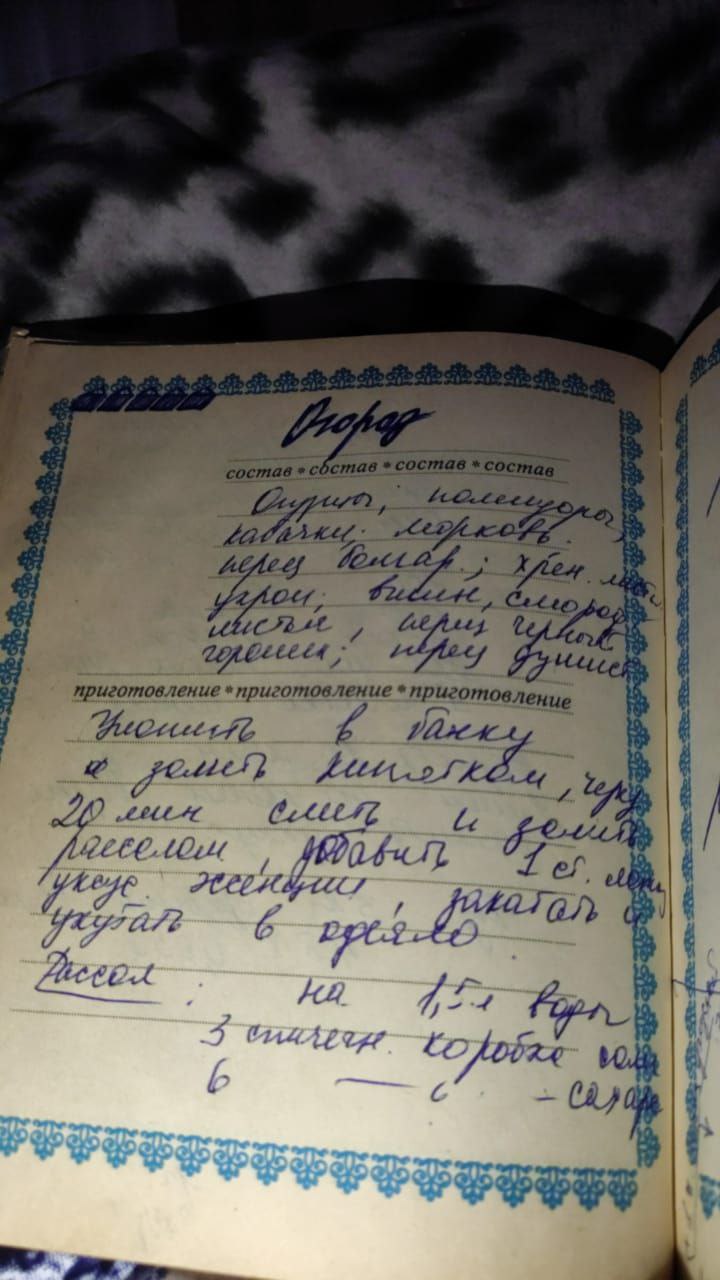 Огород
состав * состав * состав * состав
Огурцы; помидоры,
кабачки; морковь.
перец болгар.; хрен. листья
укроп; вишн, смород
листья, перец черный
горошек; перец душист
приготовление * приготовление * приготовление
Уложить в банку
и залить кипятком, через
20 мин слить и залить
рассолом, добавить 1 ст. ложку
уксус. эсенции, закатать и
укутать в одеяло
Рассол: на 1,5 л воды
3 спичечн. коробка соли
6 — " - сахара